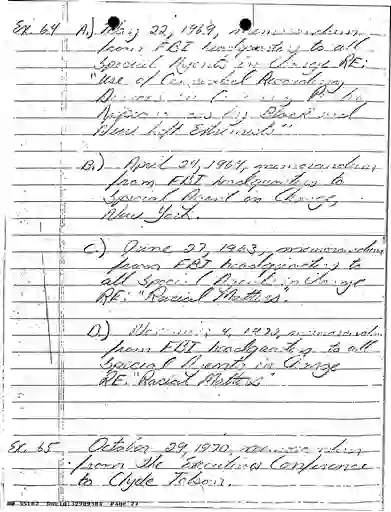 Ex. 64 A.) May 22, 1969, memorandum
from FBI headquarters to all
Special Agents in Charge RE:
"Use of Concealed Recording
Devices in
Black and
New Left Extremists"
B.) April 29, 1969, memorandum
from FBI headquarters to
Special Agent in Charge,
New York.
C.) June 27, 1963, memorandum
from FBI headquarters to
all Special Agents in Charge
RE: "Racial Matters".
D.) 4, 1970, memorandum
from FBI headquarters to all
Special Agents in Charge
RE: "Racial Matters"
Ex. 65 October 29, 1970, memorandum
from The Executives Conference
to Clyde Tolson.